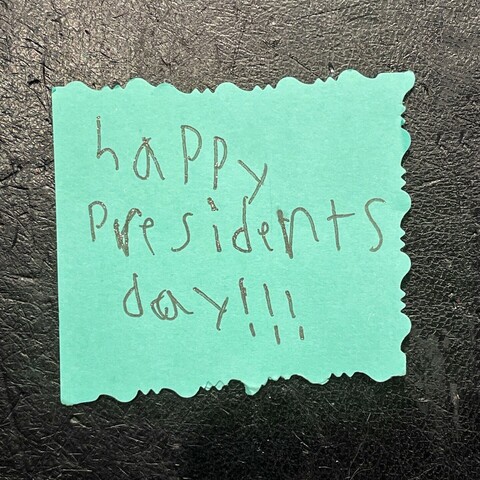 happy
presidents
day!!!